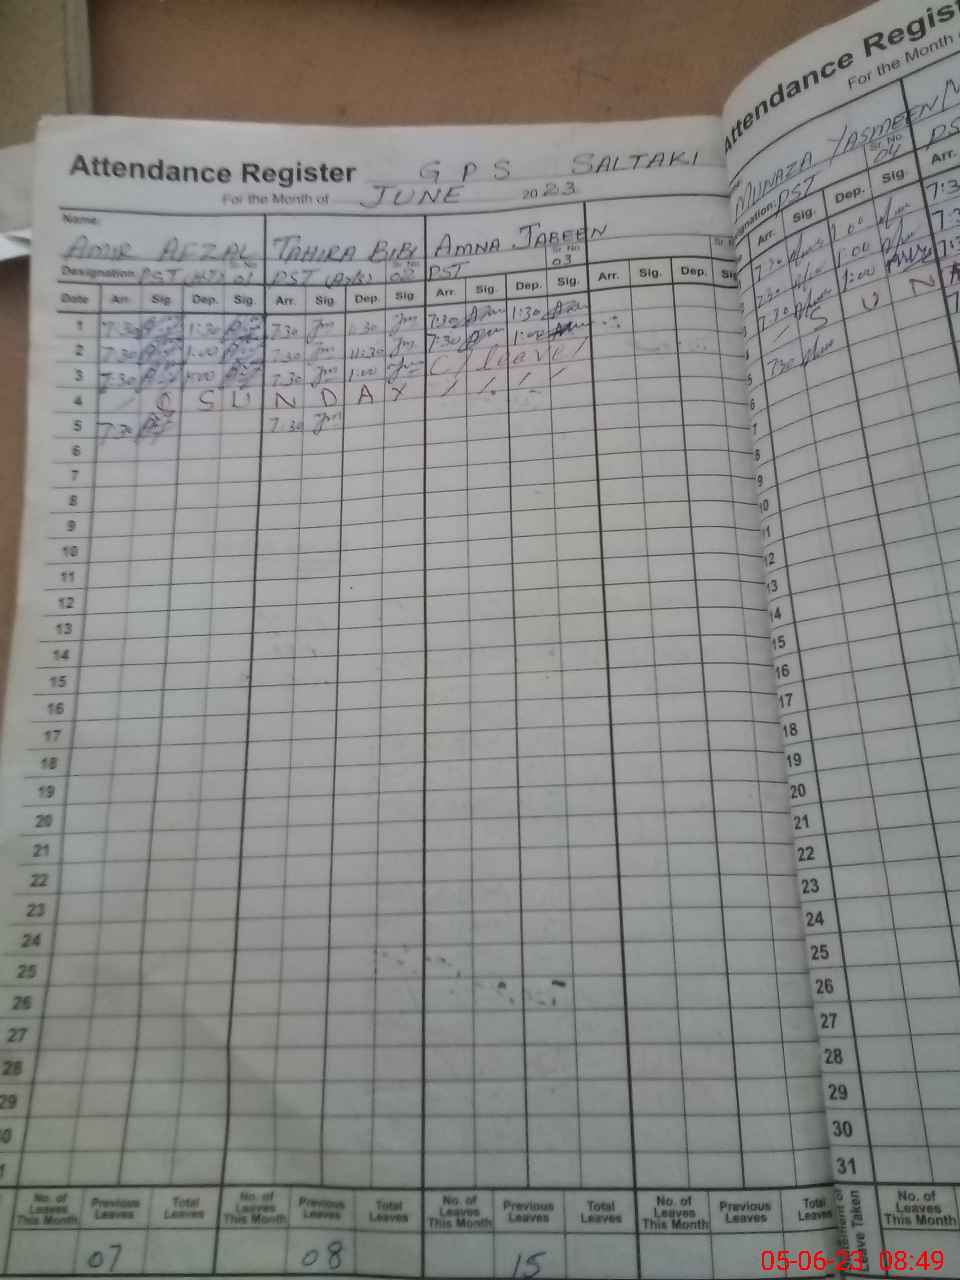 Attendance Register GPS SALTAKI
For the Month of JUNE 2023
Name:
AMIR AFZAL TAHIRA BIBI AMNA JABEEN
Sr. No
Designation: PST 01 PST 02 PST 03
Date Arr. Sig. Dep. Sig. Arr. Sig. Dep. Sig. Arr. Sig. Dep. Sig. Arr. Sig. Dep. Sig
1 7:30 1:30 7:30 1:30 7:30 1:30
2 7:30 1:00 7:30 11:30 7:30 1:00
3 7:30 1:00 7:30 1:00 C/leave/
4 SUNDAY
5 7:30 7:30
6
7
8
9
10
11
12
13
14
15
16
17
18
19
20
21
22
23
24
25
26
27
28
29
No. of Leaves This Month Previous Leaves Total Leaves No. of Leaves This Month Previous Leaves Total Leaves No. of Leaves This Month Previous Leaves Total Leaves No. of Leaves This Month Previous Leaves Total Leaves
07 08 15
Attendance Regis
For the Month
MUNAZA YASMEEN
Sr. No
04
PST
Arr. Sig. Dep. Sig. Arr.
7:30 1:00 7:3
7:30 1:00 7:3
7:30 1:00 7:3
S U N
7:30
5
6
7
8
9
10
11
12
13
14
15
16
17
18
19
20
21
22
23
24
25
26
27
28
29
30
31
Leave Taken
No. of Leaves This Month
05-06-23 08:49